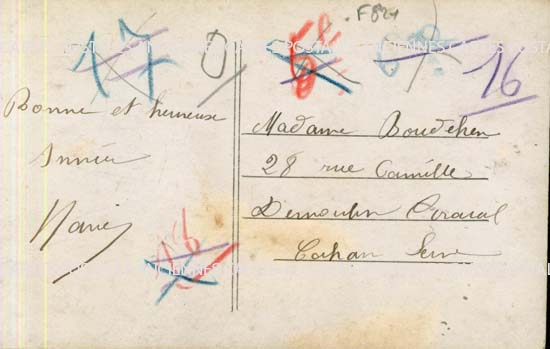 17 0
Bonne et heureuse
Année
Marie
16
F824
58
68
16
Madame Boudehen
28 rue Camille
Demoulin Arcueil
Cachan Seine